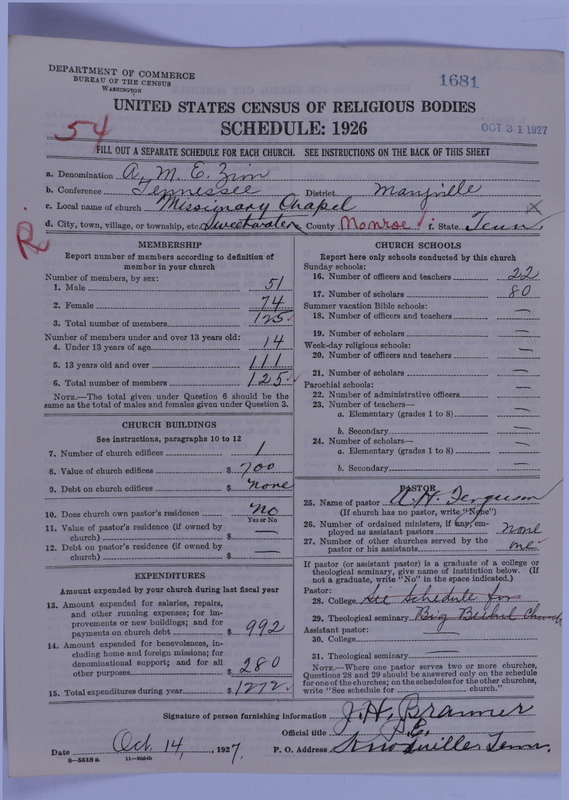 DEPARTMENT OF COMMERCE
BUREAU OF THE CENSUS
WASHINGTON
1681
UNITED STATES CENSUS OF RELIGIOUS BODIES
SCHEDULE: 1926
OCT 31 1927
54
FILL OUT A SEPARATE SCHEDULE FOR EACH CHURCH. SEE INSTRUCTIONS ON THE BACK OF THIS SHEET
a. Denomination A. M. E. Zion
b. Conference Tennessee District Maryville
c. Local name of church Missionary Chapel X
d. City, town, village, or township, etc. Sweetwater e. County Monroe f. State Tenn.
R
MEMBERSHIP
Report number of members according to definition of
member in your church
Number of members, by sex:
1. Male 51
2. Female 74
3. Total number of members 125
Number of members under and over 13 years old:
4. Under 13 years of age 14
5. 13 years old and over 111
6. Total number of members 125
NOTE.—The total given under Question 6 should be the
same as the total of males and females given under Question 3.
CHURCH BUILDINGS
See instructions, paragraphs 10 to 12
7. Number of church edifices 1
8. Value of church edifices $ 700
9. Debt on church edifices $ none
10. Does church own pastor's residence No
Yes or No
11. Value of pastor's residence (if owned by
church) $ —
12. Debt on pastor's residence (if owned by
church) $ —
EXPENDITURES
Amount expended by your church during last fiscal year
13. Amount expended for salaries, repairs,
and other running expenses; for im-
provements or new buildings; and for
payments on church debt $ 992
14. Amount expended for benevolences, in-
cluding home and foreign missions; for
denominational support; and for all
other purposes $ 280
15. Total expenditures during year $ 1272
CHURCH SCHOOLS
Report here only schools conducted by this church
Sunday schools:
16. Number of officers and teachers 22
17. Number of scholars 80
Summer vacation Bible schools:
18. Number of officers and teachers —
19. Number of scholars —
Week-day religious schools:
20. Number of officers and teachers —
21. Number of scholars —
Parochial schools:
22. Number of administrative officers —
23. Number of teachers—
a. Elementary (grades 1 to 8) —
b. Secondary —
24. Number of scholars—
a. Elementary (grades 1 to 8) —
b. Secondary —
PASTOR
25. Name of pastor A. H. Ferguson
(If church has no pastor, write "None")
26. Number of ordained ministers, if any, em-
ployed as assistant pastors none
27. Number of other churches served by the
pastor or his assistants one
If pastor (or assistant pastor) is a graduate of a college or
theological seminary, give name of institution below. (If
not a graduate, write "No" in the space indicated.)
Pastor:
28. College See Schedule for
29. Theological seminary Big Bethel Church
Assistant pastor:
30. College —
31. Theological seminary —
NOTE.—Where one pastor serves two or more churches,
Questions 28 and 29 should be answered only on the schedule
for one of the churches; on the schedules for the other churches,
write "See schedule for church."
Signature of person furnishing information J. H. Branner
Official title P. E.
Date Oct. 14, , 1927. P. O. Address Knoxville, Tenn.
8-5518 a